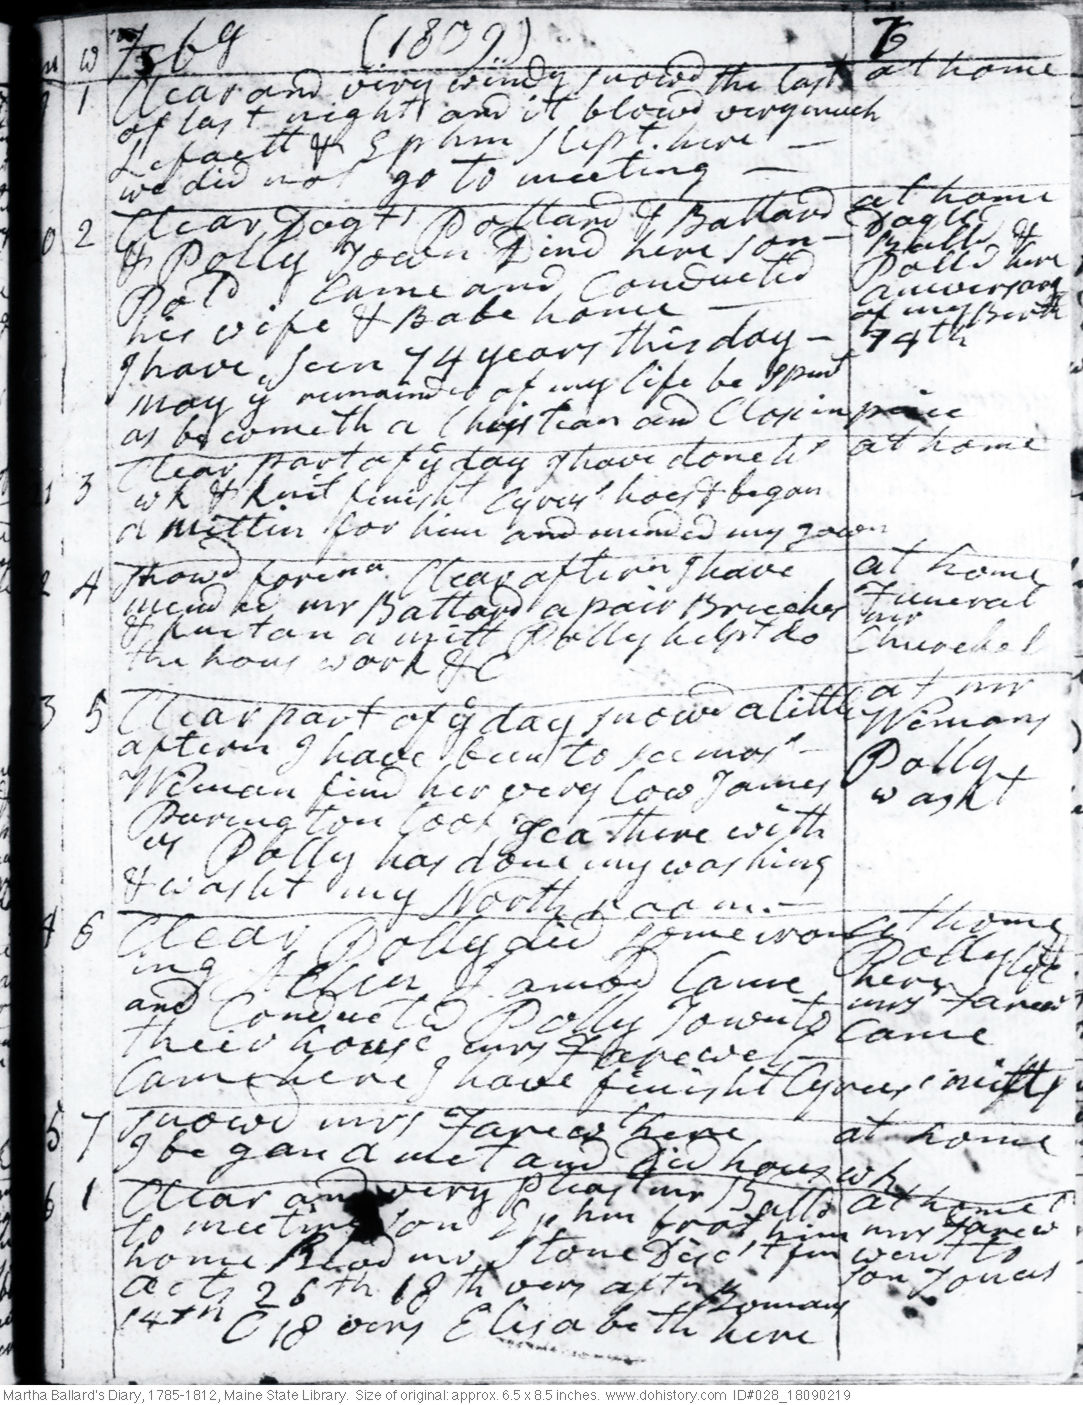 m w 7569 (1809) 76
1 Clear and very windy snowd the last at home
of last night and it blowd very much
Lefaett & Ephm Slept here –
we did not go to meeting –
0 2 Clear Dogts Pollard & Ballard at home
& Polly Town Dind here son – Dagts
Pold Came and Conducted Balld &
his wife & Babe home – Polld here
I have Seen 74 years this day – aniversary
may ye remainder of my life be Spent of my Birth
as becometh a Christian and Close in peice 74th
1 3 Clear part of ye day I have done hs at home
wk & knit finisht Cyrus' hoes & began
a mittin for him and mended my gown
2 4 Snowd foren. Clear aftern I have at home
mended mr Ballard a pair Breeches Funeral
& knit on a mitt Polly helpt do mr
the hous work &C Churchel
3 5 Clear part of ye day snowd a little at mr
aftern I have been to see mrs – Wimans
Wiman find her very low James Polly
Purington took Tea there with washt
us Polly has done my washing
& washt my North room. –
4 6 Clear Polly did some iron at home
ing Allin Lamod Came Polly left
and Conducted Polly Town to here
their house mrs Farewel – mrs Farew
Came here I have finisht Cyrus' mitts Came
5 7 snowd mrs Farewl here at home
I began a met and Did hous wk
6 1 Clear and very pleast mr Balld at home
to meeting son Ephm brot him mrs Farew
home Revd mr Stone Disct fm went to
Acts 26th 18th vers aftn Romans son Jonas
14th C 18 vers Elisabeth here
Martha Ballard's Diary, 1785-1812, Maine State Library. Size of original: approx. 6.5 x 8.5 inches. www.dohistory.com ID#028_18090219